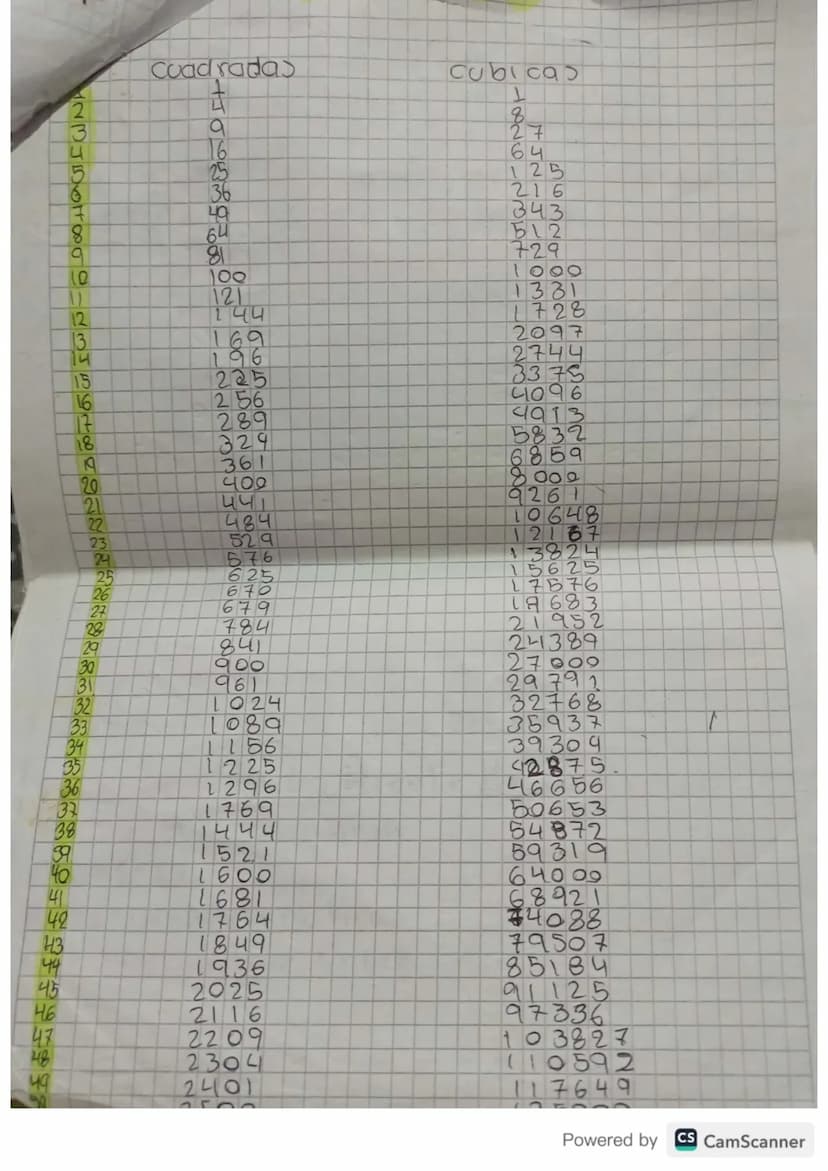 cuadradas cubicas
1 1 1
2 4 8
3 9 27
4 16 64
5 25 125
6 36 216
7 49 343
8 64 512
9 81 729
10 100 1000
11 121 1331
12 144 1728
13 169 2097
14 196 2744
15 225 3375
16 256 4096
17 289 4913
18 324 5832
19 361 6859
20 400 8000
21 441 9261
22 484 10648
23 529 12167
24 576 13824
25 625 15625
26 670 17576
27 679 19683
28 784 21952
29 841 24389
30 900 27000
31 961 29791
32 1024 32768
33 1089 35937
34 1156 39304
35 1225 42875.
36 1296 46656
37 1769 50653
38 1444 54872
39 1521 59319
40 1600 64000
41 1681 68921
42 1764 74088
43 1849 79507
44 1936 85184
45 2025 91125
46 2116 97336
47 2209 103827
48 2304 110592
49 2401 117649
Powered by CS CamScanner